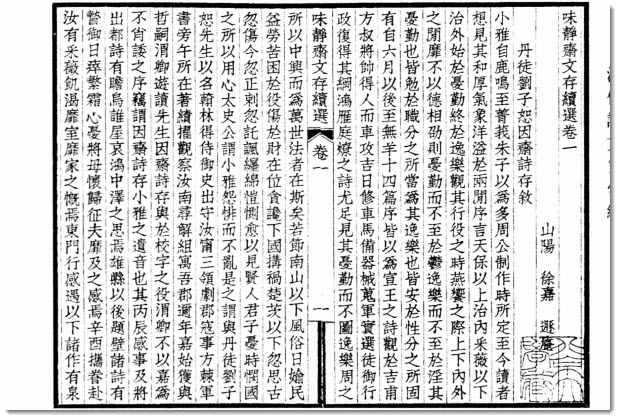 味靜齋文存續選卷一
山陽　徐嘉　遯庵
丹徒劉子恕因齋詩存敘
小雅自鹿鳴至菁莪朱子以爲多周公制作時所定至今讀者
想見其和厚氣象洋溢於兩間序言天保以上治內采薇以下
治外始於憂勤終於逸樂觀其行役之時燕饗之際上下內外
之間靡不以德相劭則憂勤而不至於鬱逸樂而不至於淫其
憂勤也皆勉於職分之所當爲其逸樂也皆安於性分之所固
有自六月以後至無羊十四篇序皆以爲宣王之詩觀於吉甫
方叔將帥得人而車攻吉日修車馬備器械蒐軍實選徒御行
政復得其綱鴻雁庭燎之詩尤足見其憂勤而不圖逸樂周之
味靜齋文存續選　卷一　一
所以中興而爲萬世法者在斯矣若節南山以下風俗日媮民
益勞苦困於役傷於財在位貪讒下國搆禍楚茨以下忽思古
忽傷今忽正刺忽託諷纏綿惜惻愈以見賢人君子憂時憫國
之所以用心太史公謂小雅怨悱而不亂是之謂與丹徒劉子
恕先生以名翰林得侍御史出守汝甯三領劇郡寇事方棘軍
書旁午所在著績擢觀察汝南尋解組寓吾郡邇年嘉始獲與
哲嗣渭卿遊讀先生因齋詩存與於校字之役渭卿不以嘉爲
不肖諉之序竊謂因齋詩存小雅之遺音也其丙辰感事及將
出都詩有瞻烏誰屋哀鴻中澤之思焉雄縣以後題壁諸詩有
暬御日瘁繁霜心憂將母懷歸征夫靡及之感焉辛酉攜眷赴
汝有采薇飢渴靡室靡家之慨焉東門行感遇以下諸作有泉